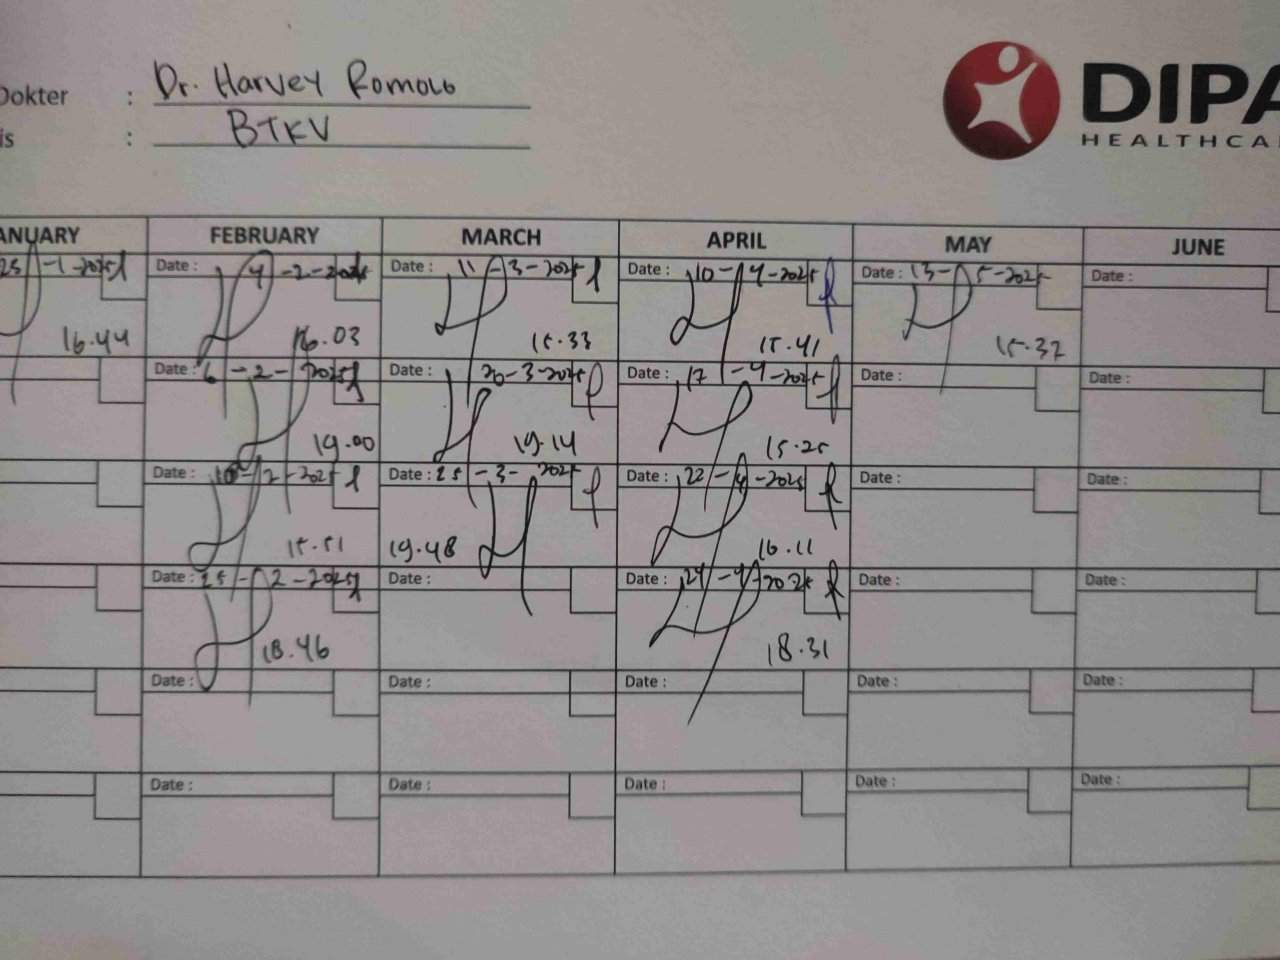 Dokter : Dr. Harvey Romolo
is : BTKV
DIPA
HEALTHCA
ANUARY FEBRUARY MARCH APRIL MAY JUNE
25-1-2025 Date : 4-2-2025 Date : 11-3-2025 Date : 10-4-2025 Date : 13-5-2025 Date :
16.44 16.03 15.33 15.41 15.37
Date : 6-2-2025 Date : 20-3-2025 Date : 17-4-2025 Date : Date :
19.00 19.14 15.25
Date : 18-2-2025 Date : 25-3-2025 Date : 22-4-2025 Date : Date :
15.51 19.48 16.11
Date : 25-2-2025 Date : Date : 24-4-2025 Date : Date :
18.46 18.31
Date : Date : Date : Date : Date :
Date : Date : Date : Date : Date :